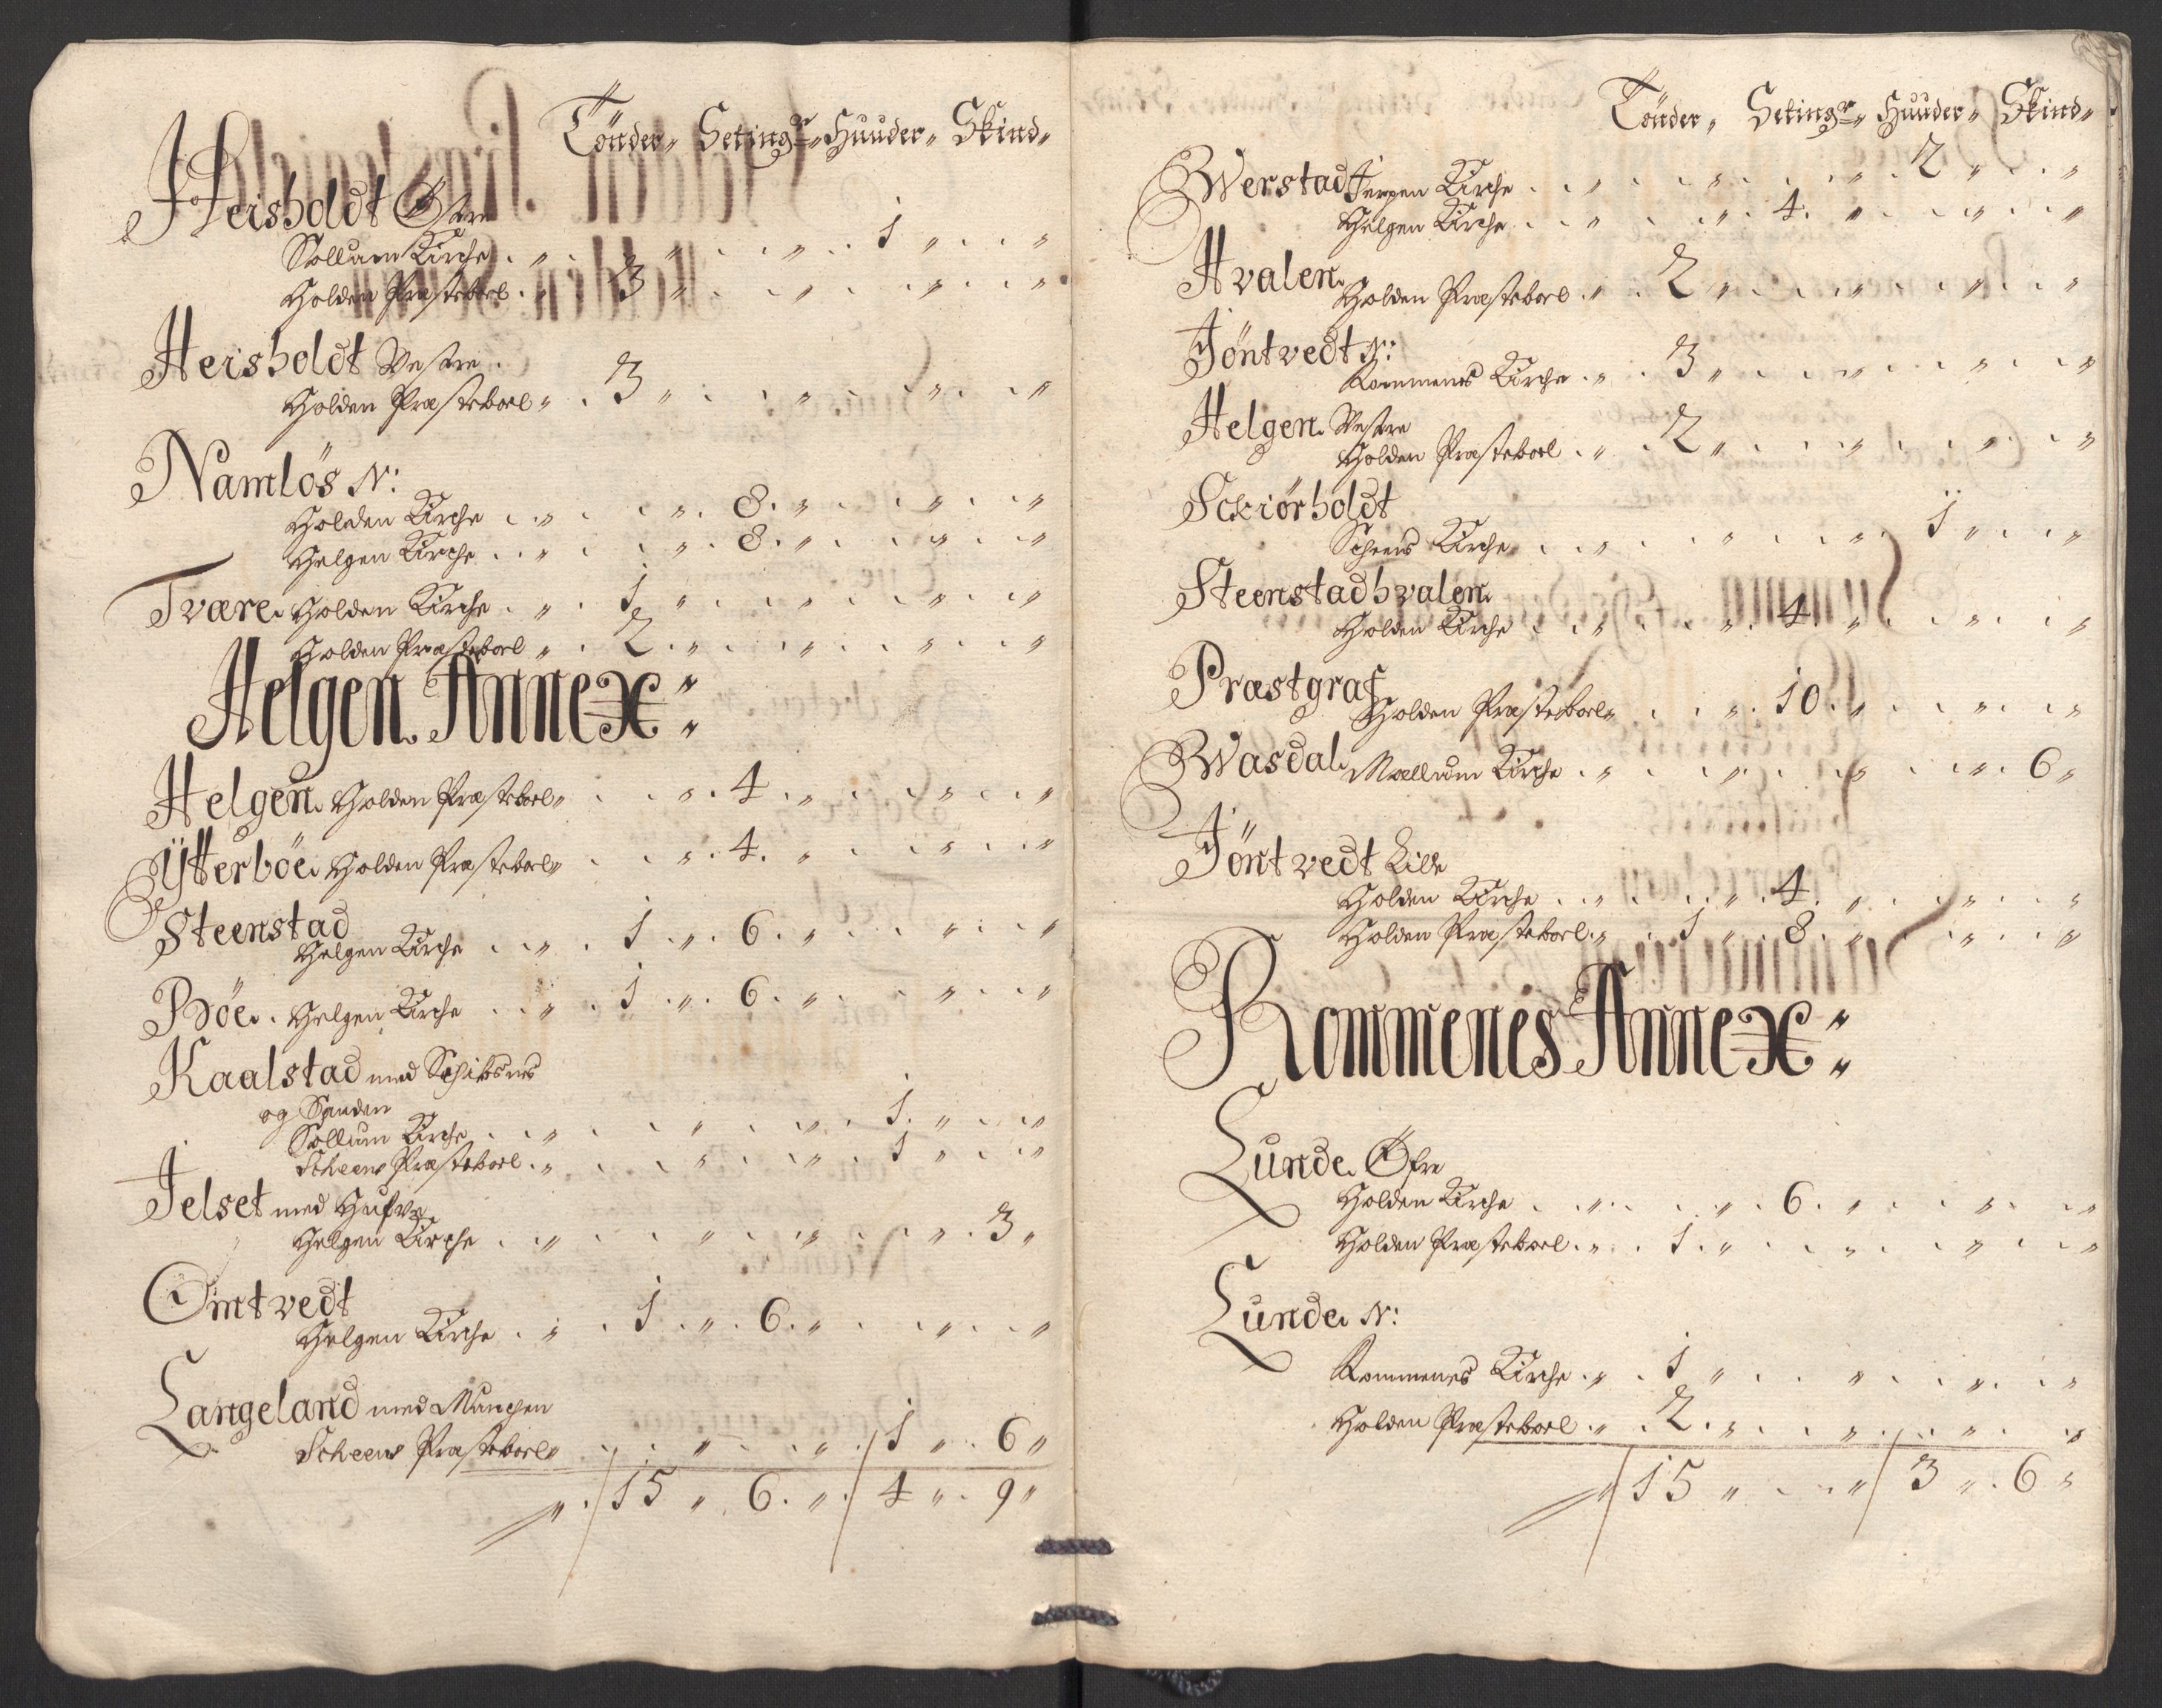 Tönder„ Setingr„ Huuder„ Skind„
Heisholdt Østre
Sollum Kirche . „ . „ . . „ . . 1 „ . . „
Holden Præsteboel . „ . 3 „ . . „ . . „ . . „
Heisholdt Vestre .
Holden Præsteboel „ . 3 „ . . „ . . „ . . „
Namløs N:
Holden Kirche . „ . . „ . 8 . „ . . „ . . „
Helgen Kirche . . „ . . „ . 8 . „ . . „ . . „
Tvære. Holden Kirche . „ . 1 „ . . „ . . „ . . „
Holden Præsteboel „ . 2 . „ . . „ . . „ . . „
Helgen Annex :
Helgen. Holden Præsteboel „ . . „ . 4 . „ . . „ . . „
Ÿtterböe. Holden Præsteboel „ . . „ . 4 . „ . . „ . . „
Steenstad
Helgen Kirche . . „ . 1 . „ . 6 . „ . . „ . . „
Böe. . Helgen Kirche . . „ . 1 . „ . 6 . „ . . „ . . „
Kaalstad med Schibsnes
og Sanden
Sollum Kirche . . „ . . „ . . „ . 1 . „ . . „
Scheens Præsteboel . „ . . „ . . „ . 1 „ . . „
Jelset med Hufvæ
Helgen Kirche . . „ . . „ . . „ . . „ . 3 „
Omtvedt
Helgen Kirche . „ . 1 . „ . 6 . „ . . „ . . „
Langeland med Munchen
Scheens Præsteboel „ . . „ . . „ . 1 „ . 6 „
„ . 15 „ 6 . „ . 4 „ . 9 „
Tönder „ Setingr „ Huuder „ Skind „
Werstad Jerpen Kirche . . „ . . „ . . „ . 2 „ . . „
Helgen Kirche . . „ . . „ . 4 . „ . . „ . . „
Hvalen.
Holden Præsteboel . „ . 2 „ . . „ . . „ . . „
Jöntvedt N:
Rommenes Kirche . „ . 3 „ . . „ . . „ . . „
Helgen. Vestre
Holden Præsteboel . „ . 2 „ . . „ . . „ . . „
Sckiörholdt
Scheens Kirche . . „ . . „ . . „ . 1 „ . . „
Steenstadhvalen.
Holden Kirche . . „ . . „ . 4 . „ . . „ . . „
Præstgraf
Holden Præsteboel „ . . „ . 10 . „ . . „ . . „
Wasdal. Mællum Kirche . „ . . „ . . „ . . „ . 6 „
Jöntvedt Lille
Holden Kirche . . „ . . „ . 4 . „ . . „ . . „
Holden Præsteboel . „ . 1 „ . 8 . „ . . „ . . „
Rommenes Annex :
Lunde. Øfre
Holden Kirche . . „ . . „ . 6 . „ . . „ . . „
Holden Præsteboel . „ . 1 . „ . . „ . . „ . . „
Lunde. N:
Rommenes Kirche . „ . 1 „ . . „ . . „ . . „
Holden Præsteboel . „ . 2 . „ . . „ . . „ . . „
„ 15 „ . . „ 3 „ . 6 „